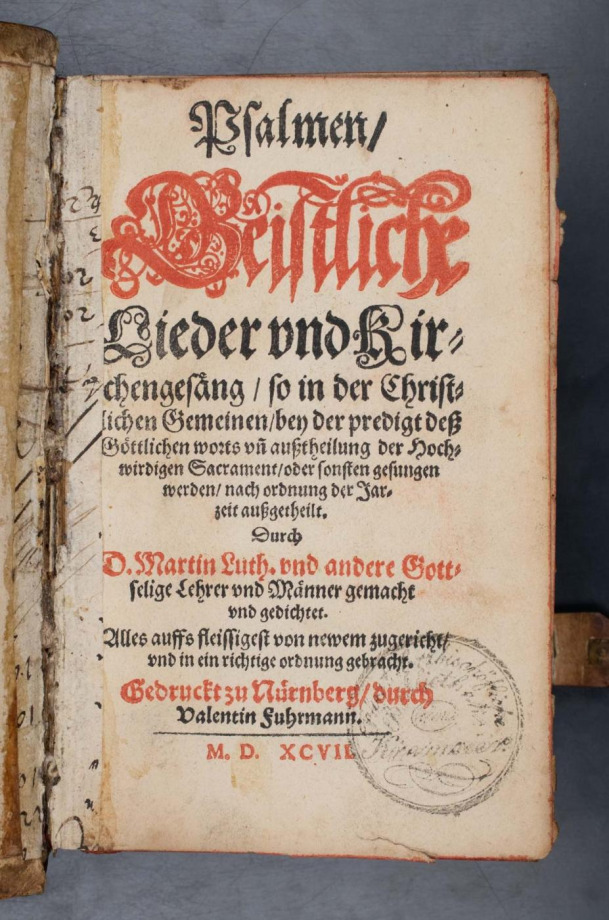 Psalmen/
Geistliche
Lieder vnd Kir⸗
chengesäng / so in der Christ⸗
lichen Gemeinen/bey der predigt deß
Göttlichen worts vñ außtheilung der Hoch⸗
wirdigen Sacrament/oder sonsten gesungen
werden/ nach ordnung der Jar⸗
zeit außgetheilt.
Durch
D. Martin Luth. vnd andere Gott⸗
selige Lehrer vnd Männer gemacht
vnd gedichtet.
Alles auffs fleissigest von newem zugericht/
vnd in ein richtige ordnung gebracht.
Gedruckt zu Nürnberg/ durch
Valentin Fuhrmann.
M. D. XCVII